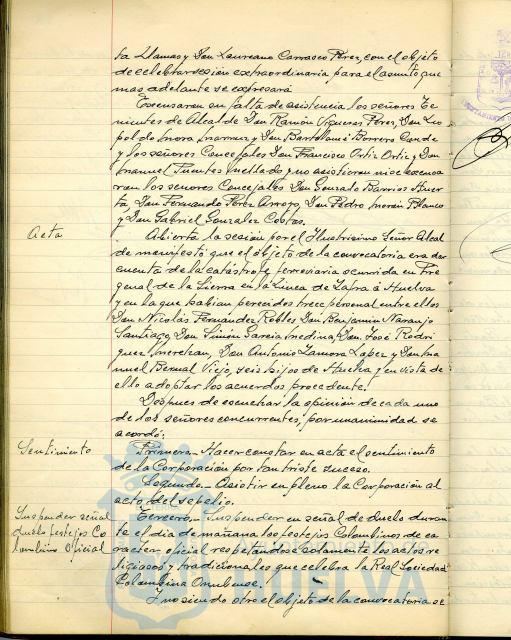 ta Llamas y Don Laureano Carrasco Perez, con el objeto
de celebrar sesión extraordinaria para el asunto que
mas adelante se expresará
Excusaron su falta de asistencia los señores Te
nientes de Alcalde Don Ramón Vigueras Perez, Don Leo
poldo Mora Mamuz y Don Bartolomé Borrero Conde
y los señores Concejales Don Francisco Ortiz Ortiz y Don
Manuel Fuentes Mellado y no asistieron ni se excusa
ron los señores Concejales Don Gonzalo Barrios Huer
ta, Don Fernando Perez Arroyo, Don Pedro Morón Blanco
y Don Gabriel Gonzalez Costas.
Acta
Abierta la sesión por el Ilustrisimo Señor Alcal
de manifestó que el objeto de la convocatoria era dar
cuenta de la catástrofe ferroviaria ocurrida en Fre
genal de la Sierra en la Linea de Zafra á Huelva
y en la que habian perecidos trece personal entre ellos
Don Nicolás Fernandez Robles, Don Benjamin Naranjo
Santiago, Don Simón Garcia Medina, Don José Rodri
guez Merchan, Don Antonio Zamora Lopez y Don Ma
nuel Bernal Viejo, seis hijos de Huelva y en vista de
ello adoptar los acuerdos procedente.
Despues de escuchar la opinión de cada uno
de los señores concurrentes, por unanimidad se
acordó:
Sentimiento
Primero.- Hacer constar en acta el sentimiento
de la Corporación por tan triste suceso.
Segundo.- Asistir en pleno la Corporación al
acto del sepelio.
Suspender señal
duelo festejos Co
lombino Oficial
Tercero.- Suspender en señal de duelo duran
te el dia de mañana los festejos Colombinos de ca
racter oficial respetandose solamente los actos re
ligiosos y tradicionales que celebra la Real Sociedad
Colombina Onubense.
Y no siendo otro el objeto de la convocatoria se
HUELVA